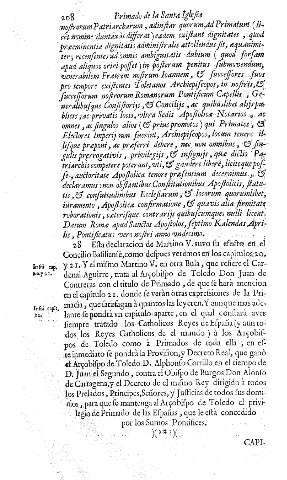 208 Primado de la Santa Iglesia
nostrorum Patriarcharum, adinstar quorum, ad Primatum (licet
nomine duntaxat differat) eadem existant dignitates, quod
præeminentia dignitatis administranda attollendus sit, equanimiter,
recensentes: ad omnis ambiguitatis dubium (quod forsam
apud aliquos oriri posset) in posterum penitus submovendum,
venerabilem Fratrem nostrum Ioannem, & successores suos
pro tempore existentes Toletanos Archiepiscopos, in nostris, &
successorum nostrorum Romanorum Pontificum Capellis, Generalibusque
Consistorijs, & Concilijs, ac quibuslibet alijs publicis,
ac privatis locis, vltra Sedis Apostolicæ Notarios, ac
omnes, ac singulos alios (& prius promotos) qui Primates, &
Electores Imperij non fuerint, Archiepiscopos, locum tenere illisque
præponi, ac præferri debere, nec non omnibus, & singulis
prerrogativis, privilegijs, & insignijs, quæ dictis Patriarchis
competere possent, vti, & gaudere liberè, licitèque posse,
auctoritate Apostolica tenore præsentium decernimus, &
declaramus: non obstantibus Constitutionibus Apostolicis, statutis,
& consuetudinibus Ecclesiarum, & locorum quorumlibet,
iuramento, Apostolica confirmatione, & quavis alia firmitate
roboratis, caeterisque contrarijs quibuscumque: nulli liceat.
Datum Romæ apud Sanctos Apostolos, septimo Kalendas Aprilis,
Pontificatus vero nostri anno vndecimo.
28 Esta declaracion de Martino V. tuvo su efecto en el
Concilio Basiliense, como despues veremos en los capitulos 20.
y 21. Y el mismo Martino V. en otra Bula, que refiere el Cardenal
Aguirre, trata al Arçobispo de Toledo Don Juan de
Contreras con el titulo de Primado, de que se hará mencion
en el capitulo 21. donde se verán otras expressiones de la Primada,
que satisfagan à quantos las leyeren. Y aunque mas adelante
se pondrá vn capitulo aparte, en el qual constará aver
siempre tratado los Catholicos Reyes de España (y aun todos
los Reyes Catholicos de el mundo) à los Arçobispos
de Toledo como à Primados de toda ella; en este
inmediato se pondrá la Provision, y Decreto Real, que ganò
el Arçobispo de Toledo D. Alphonso Carrillo en el tiempo de
D. Juan el Segundo, contra el Obispo de Burgos Don Alonso
de Cartagena, y el Decreto de el mismo Rey dirigido à todos
los Prelados, Principes, Señores, y Justicias de todos sus dominios,
para que se mantenga al Arçobispo de Toledo el privilegio
de Primado de las Españas, que le està concedido
por los Sumos Pontifices.
CAPI-